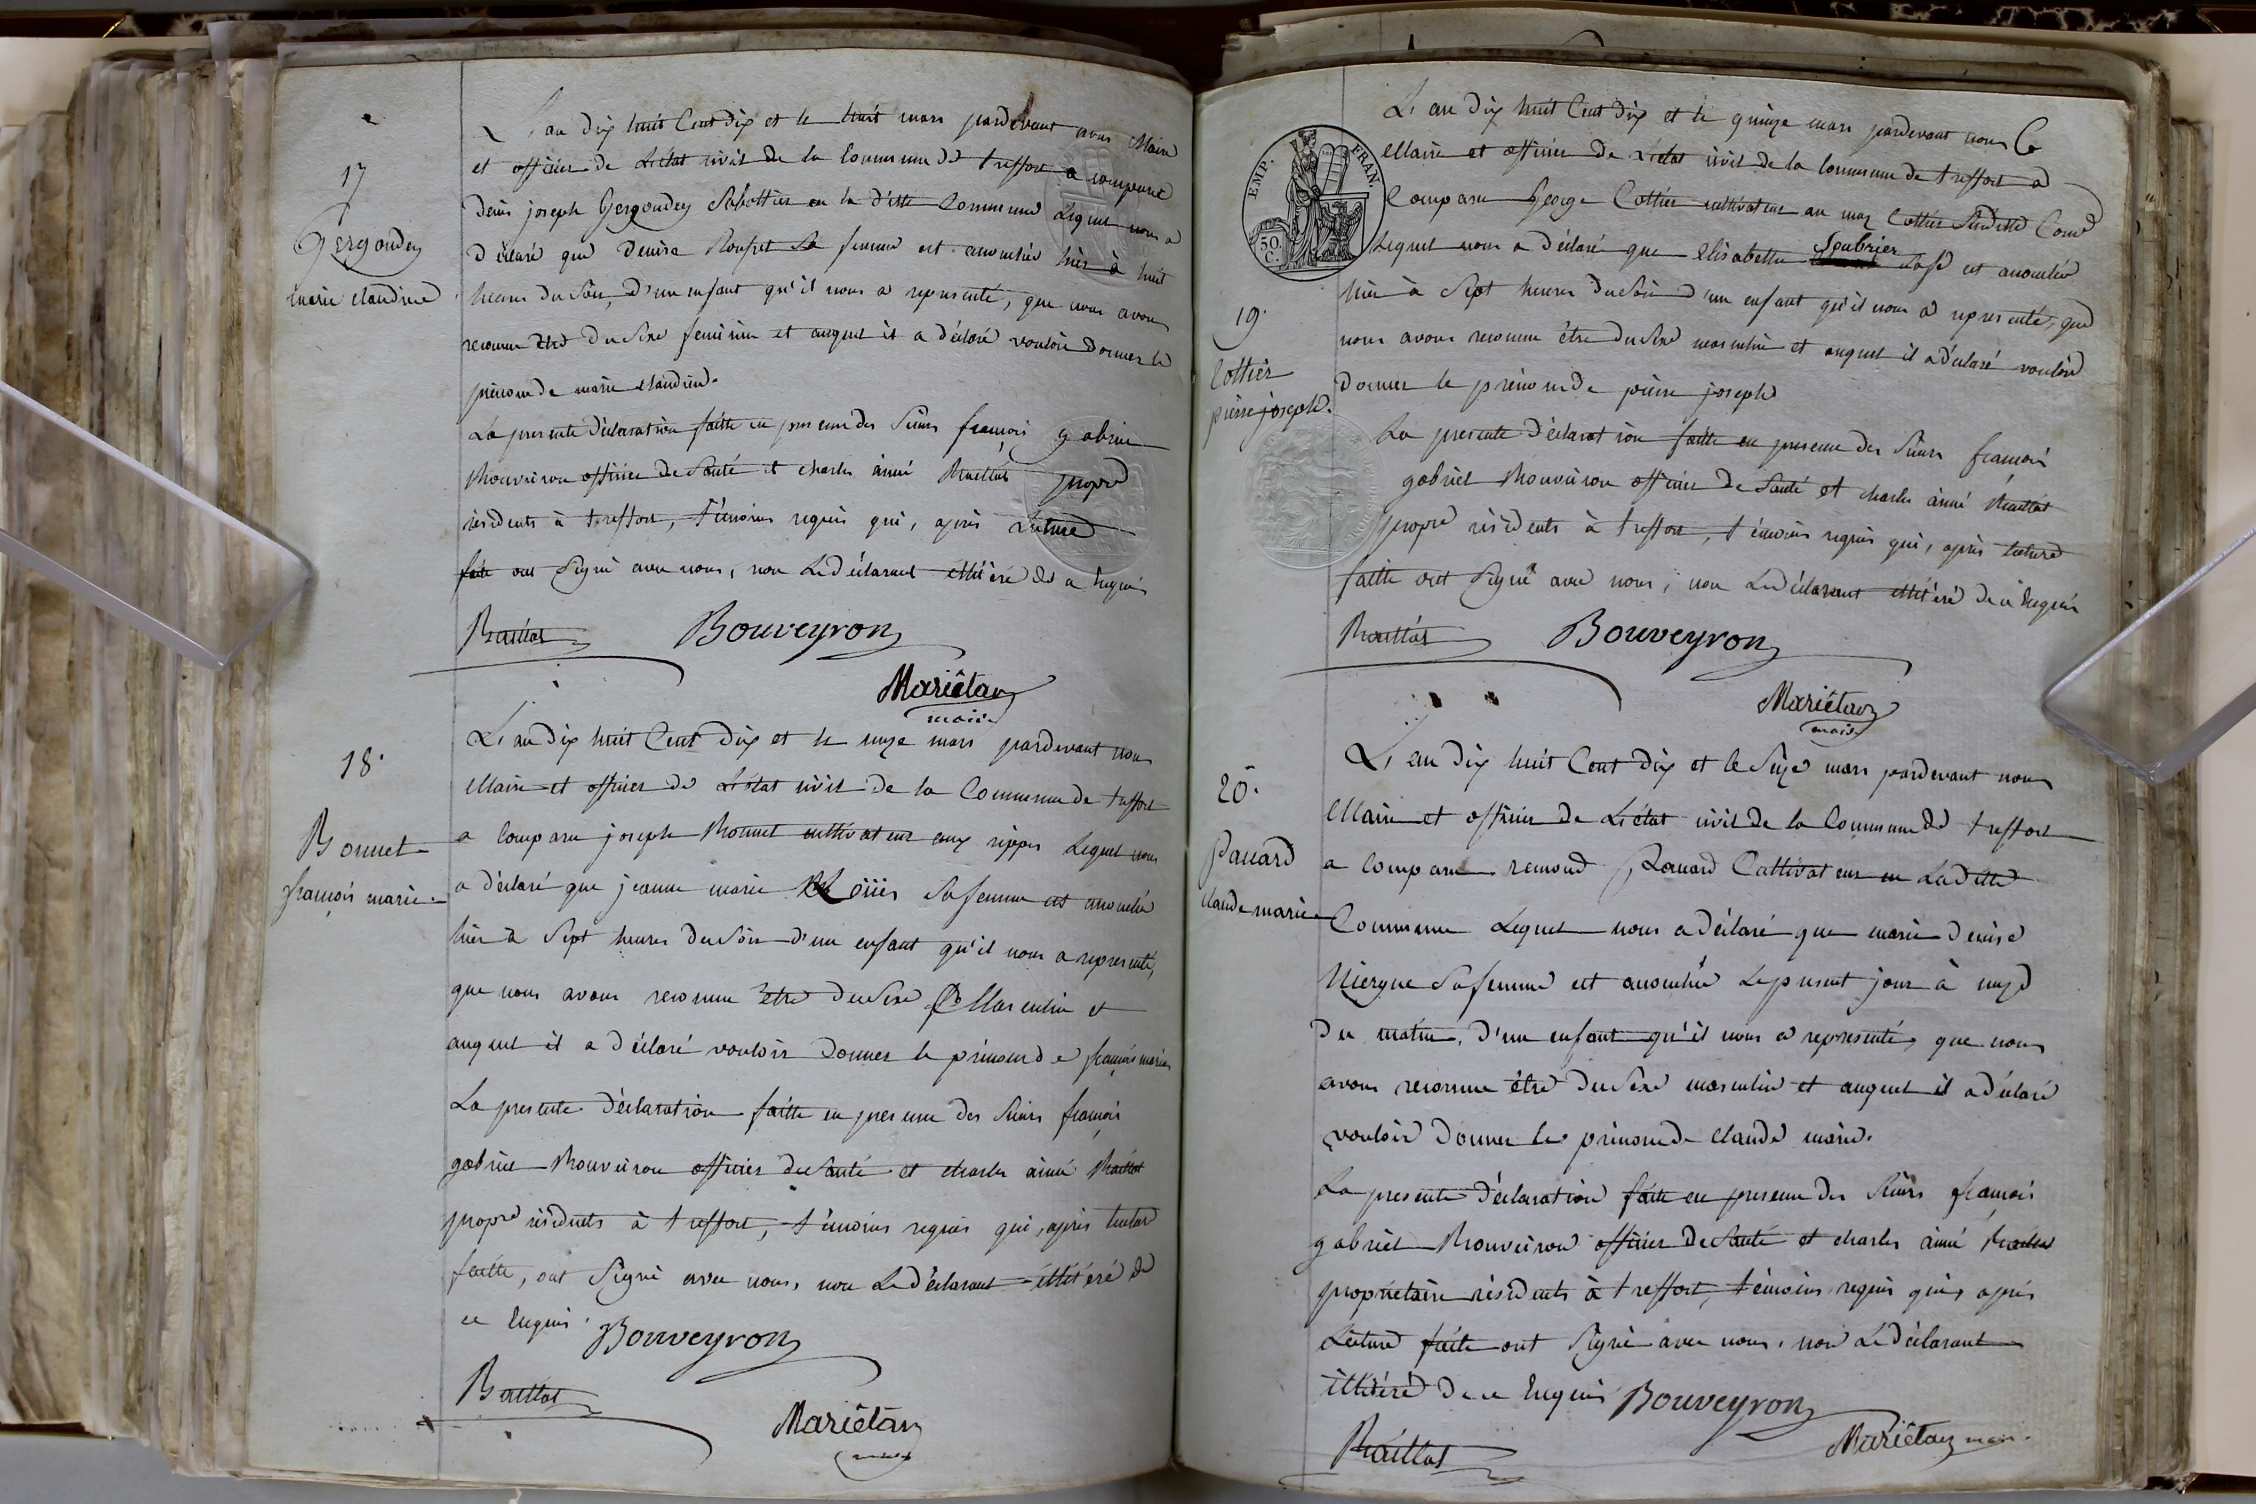 17
Gergondey
marie claudine
L'an dix huit Cent dix et le huit mars pardevant nous Maire
et officier de L'état civil de la Commune de treffort a comparu
denis joseph Gergondey Sabottier en la d'itte Commune Lequel nous a
d'éclaré que denise sa femme est accouchée hier à huit
heures du Soir, D'un enfant qu'il nous a representé, que nous avons
reconnu être du Sexe feminin et auquel il a d'éclaré vouloir donner le
prénom de marie claudine.
La presente d'éclaration faitte en presence des Sieurs françois gabriel
Bouveiron officier de Santé et charles aimé Baillat propre
résidents à treffort, t'émoins requis qui, après Lecture
faite ont Signé avec nous, non Le d'éclarant illit'eré de ce Enquis
Baillat Bouveyron
Mariétan
maire
18.
Bonnet
françois marie
L'an dix huit Cent dix et le onze mars pardevant nous
Maire et officier de L'état civil de la Commune de treffort
a Comparu joseph Bonnet cultivateur aux rippes Lequel nous
a d'éclaré que jeanne marie Sa femme est accouchée
hier à Sept heures du Soir d'un enfant qu'il nous a representé,
que nous avons reconnu être du Sexe Masculin et
auquel il a d'éclaré vouloir donner le prénom de françois marie
La presente d'éclaration faitte en presence des Sieurs françois
gabriel Bouveiron officier de Santé et charles aimé Baillat
propre résidents à treffort, t'émoins requis qui, après lecture
faitte, ont Signé avec nous, non Le d'éclarant illit'eré de
ce Enquis Bouveyron
Baillat
Mariétan
maire
EMP. FRAN.
50.
C.
19.
Cottier
pierre joseph.
L'an dix huit Cent dix et le quinze mars pardevant nous
Maire et officier de L'etat civil de la Commune de treffort a
Comparu George Cottier cultivateur au maz Cottier Sud'itte Comne
Lequel nous a d'éclaré que elisabethe Soubrier Sa fe est accouchée
hier à Sept heures du Soir d'un enfant qu'il nous a representé, que
nous avons reconnu être du Sexe masculin et auquel il a d'éclaré vouloir
donner le prénom de pierre joseph
La presente d'éclaration faitte en presence des Sieurs françois
gabriel Bouveiron officier de Santé et charles aimé Baillat
propre résidents à treffort, t'émoins requis qui, après lecture
faitte ont Signé avec nous, non Le d'éclarant illit'eré de ce Enquis
Baillat Bouveyron
Mariétan
maire
20.
Pauard
claude marie
L'an dix huit Cent dix et le Seize mars pardevant nous
Maire et officier de L'état civil de la Commune de treffort
a Comparu remond Pauard Cultivateur en La ditte
Commune Lequel nous a d'éclaré que marie denise
Niergue Sa femme est accouchée Le present jour à onze
du matin, d'un enfant qu'il nous a representé, que nous
avons reconnu être du Sexe masculin et auquel il a d'éclaré
vouloir donner le prénom de claude marie.
La presente d'éclaration faitte en presence des Sieurs françois
gabriel Bouveiron officier de Santé et charles aimé Baillat
propriétaire résidents à treffort, témoins requis qui, après
Lecture faitte ont Signé avec nous, non Le d'éclarant
illit'éré de ce Enquis Bouveyron
Baillat Mariétan maire